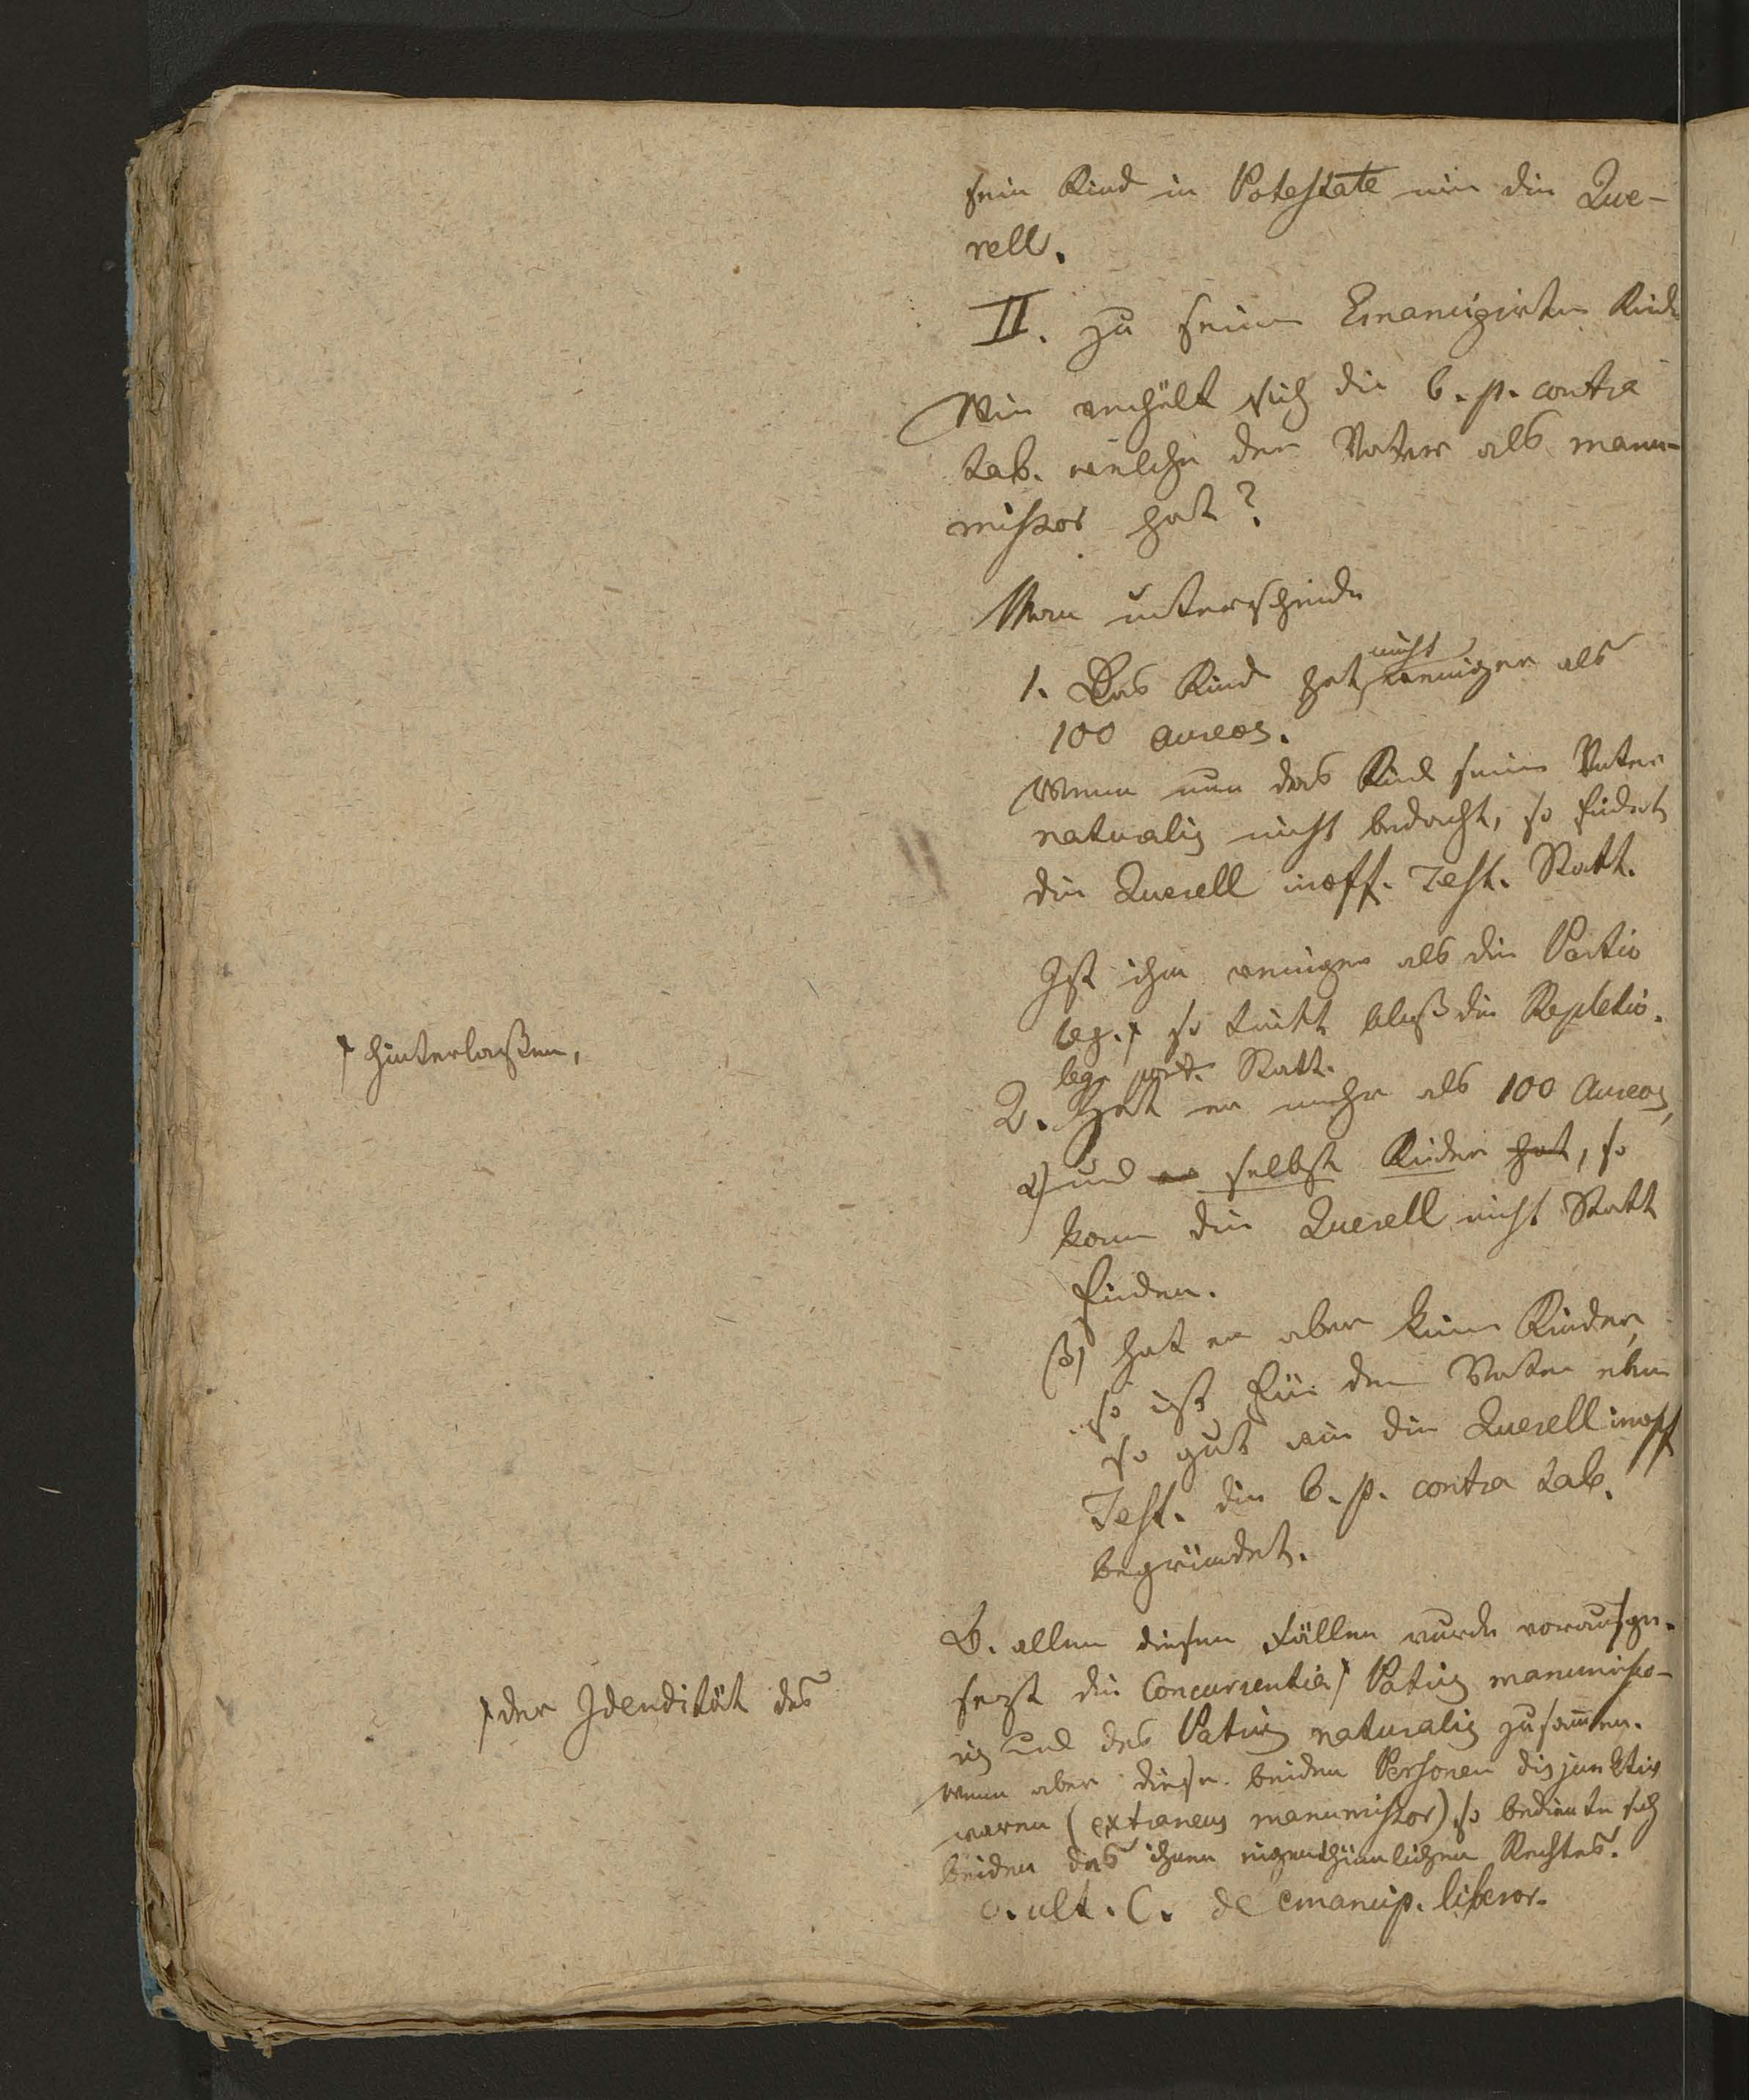 sein Kind in Potestate nie die Que-
rell.
II. zu seinem Emancipirten Kinde
Wie verhält sich die b. p. contra
tab. welche der Vater als manu-
missor hat?
Man unterscheide
1. Das Kind hat nicht weniger als
100 aureos.
Wenn nun das Kind seinen Vater
naturalis nicht bedacht, so findet
die Querell inoff. Test. Statt.
Ist ihm weniger als die Portio
leg. ⨍ so tritt bloß die Repletio.
⨍ hinterlaßen,
leg. port. Statt.
2. Hat er mehr als 100 Aureos,
α) und er selbst Kinder hat, so
kann die Querell nicht Statt
finden.
β) hat er aber keine Kinder,
so ist für den Vater eben
so gut wie die Querell inoff
Test. die b. p. contra tab.
begründet.
B. allen diesen Fällen wurde vorausge-
sezt die Concurrentia ⨍ Patris manumisso-
⨍ der Idendität des
ris und des Patris naturalis zusammen.
wenn aber diese beiden Personen disjunktiv
waren (extraneus manumissor) so bediente sich
beiden des ihnen eigenthümlichen Rechtes.
c. ult. C. de emancip. liberor.